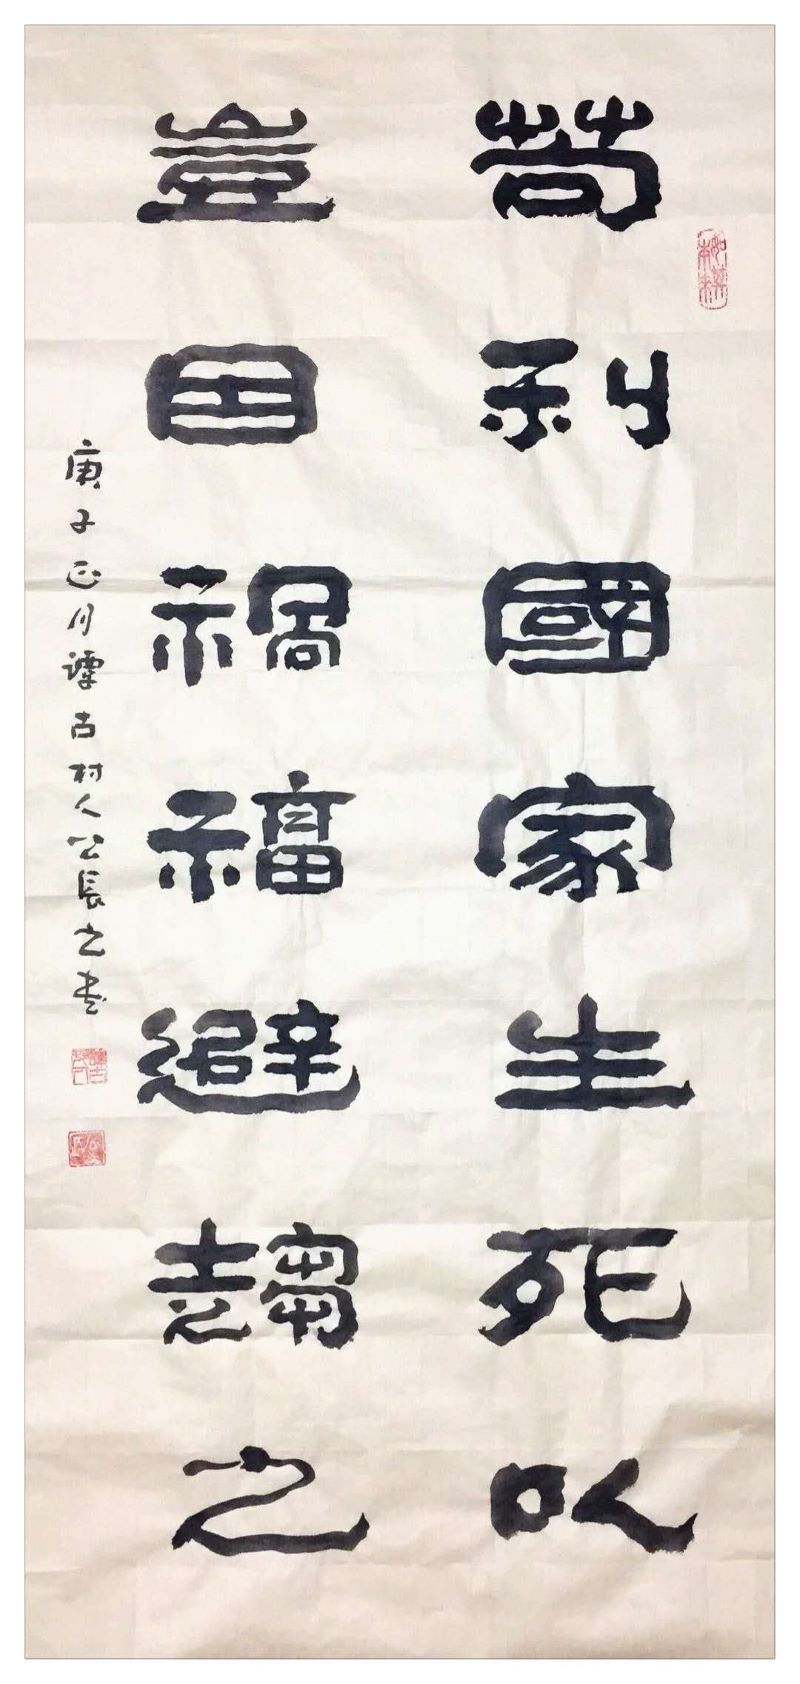 苟利國家生死以
豈因禍福避趨之
庚子正月譚古村人公長之書